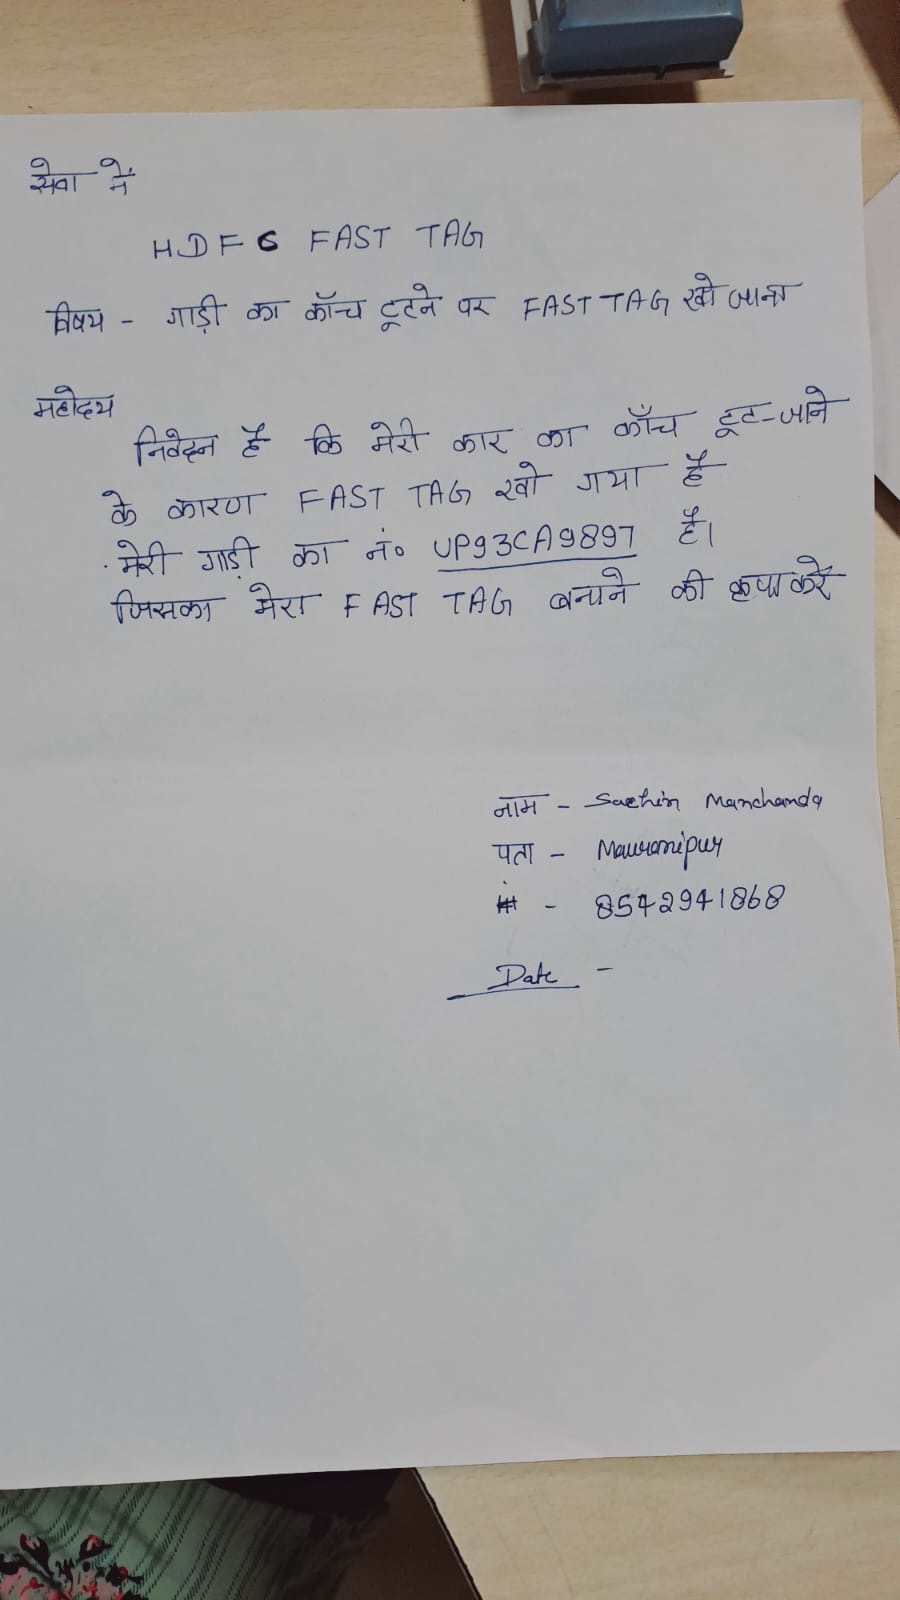 सेवा में
HDFC FAST TAG
विषय - गाड़ी का काँच टूटने पर FAST TAG खो जाना
महोदय
निवेदन है कि मेरी कार का काँच टूट-जाने
के कारण FAST TAG खो गया है
मेरी गाड़ी का नं० UP93CA9897 है।
जिसका मेरा FAST TAG बनाने की कृपा करें
नाम - Sachin Manchanda
पता - Mauranipur
- 8542941868
Date -